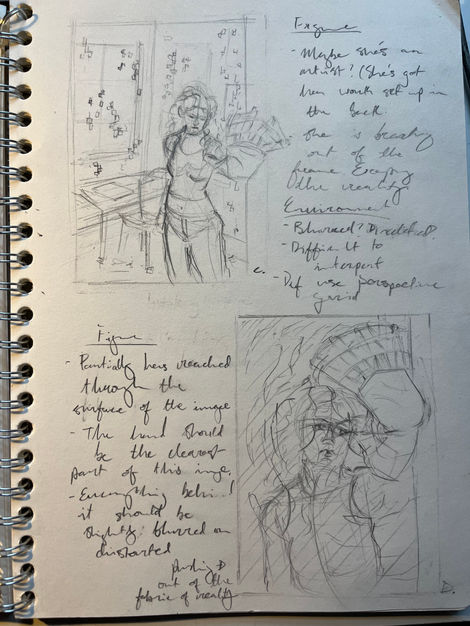 Figure
- Maybe she's an
artist? (She's got
her work set up in
the back.
- She is breaking
out of the
frame. Escaping
the reality
Environment
- Blurred? Pixelated?
- Difficult to
interpret
- Def use perspective
grid
C.
Figure
- Partially has reached
through the
surface of the image
- The hand should
be the clearest
part of this image.
- Everything behind
it should be
slightly blurred or
distorted
Pushing
out of the
fabric of reality
D.